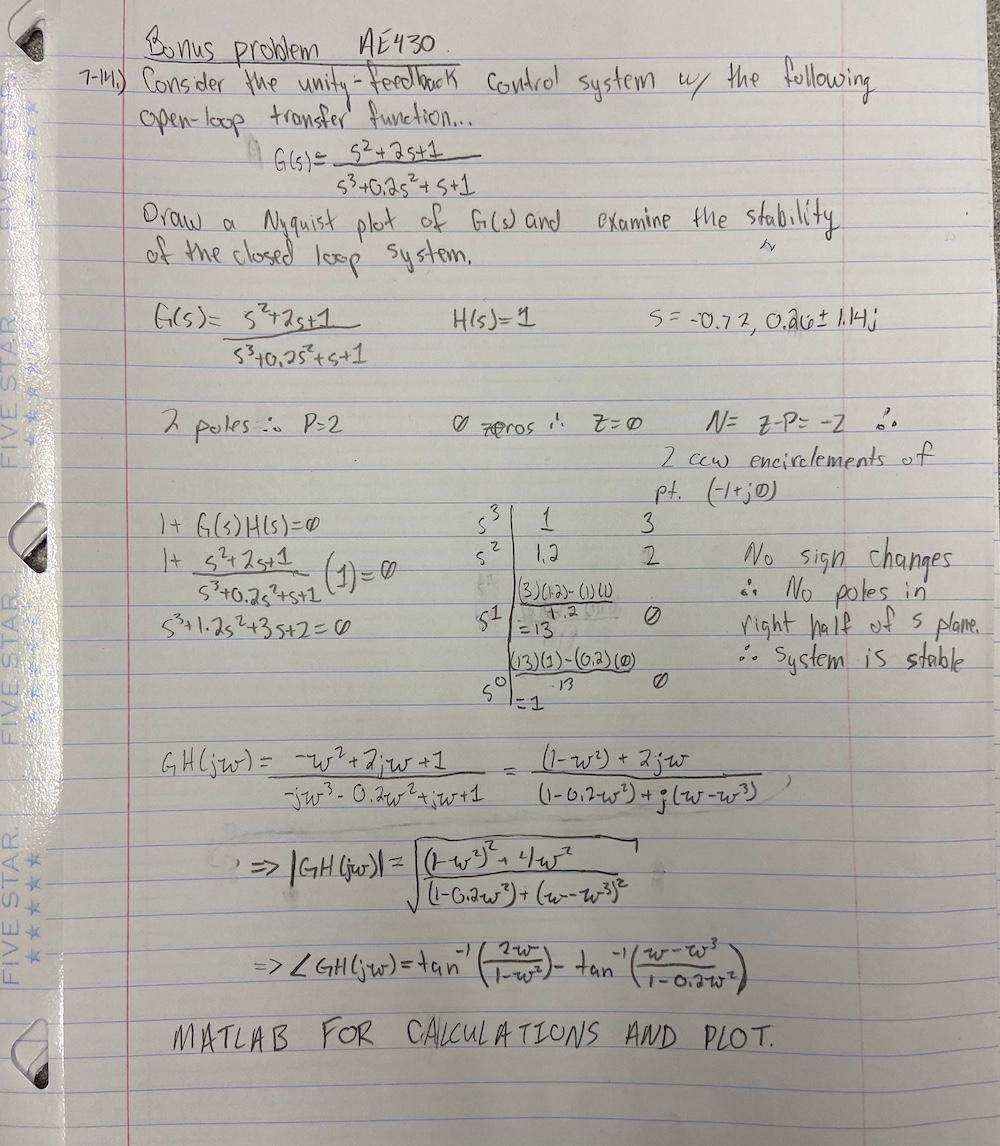 Bonus problem AE430
7-14.) Consider the unity-feedback control system w/ the following
open-loop transfer function...
G(s) = (s²+2s+1)/(s³+0.2s²+s+1)
Draw a Nyquist plot of G(s) and examine the stability
of the closed loop system.
G(s) = (s²+2s+1)/(s³+0.2s²+s+1) H(s)=1 s = -0.72, 0.26 ± 1.14j
2 poles ∴ P=2 0 zeros ∴ Z=0 N= Z-P= -2 ∴
2 ccw encirclements of
pt. (-1+j0)
1+ G(s)H(s)=0
1+ (s²+2s+1)/(s³+0.2s²+s+1) (1)=0
s³+1.2s²+3s+2=0
s³ | 1 3
s² | 1.2 2
s¹ | ((3)(1.2)-(1)(1))/1.2 =13 0
s⁰ | ((13)(1)-(0.2)(0))/13 =1 0
No sign changes
∴ No poles in
right half of s plane.
∴ System is stable
GH(jw) = (-w²+2jw+1)/(-jw³-0.2w²+jw+1) = ((1-w²)+2jw)/((1-0.2w²)+j(w-w³))
=> |GH(jw)| = √(((1-w²)²+4w²)/((1-0.2w²)+(w-w³)²))
=> ∠GH(jw) = tan⁻¹(2w/(1-w²)) - tan⁻¹((w-w³)/(1-0.2w²))
MATLAB FOR CALCULATIONS AND PLOT.
FIVE STAR
FIVE STAR
FIVE STAR
FIVE STAR